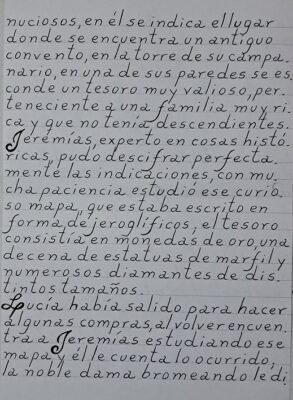 nuciosos, en él se indica el lugar
donde se encuentra un antiguo
convento, en la torre de su campa_
nario, en una de sus paredes se es_
conde un tesoro muy valioso, per_
teneciente a una familia muy ri_
ca y que no tenía descendientes.
Jeremías, experto en cosas histó_
ricas, pudo descifrar perfecta_
mente las indicaciones, con mu_
cha paciencia estudió ese curio_
so mapa, que estaba escrito en
forma de jeroglíficos, el tesoro
consistía en monedas de oro, una
decena de estatuas de marfil y
numerosos diamantes de dis_
tintos tamaños.
Lucía había salido para hacer
algunas compras, al volver encuen_
tra a Jeremías estudiando ese
mapa y él le cuenta lo ocurrido,
la noble dama bromeando le di_